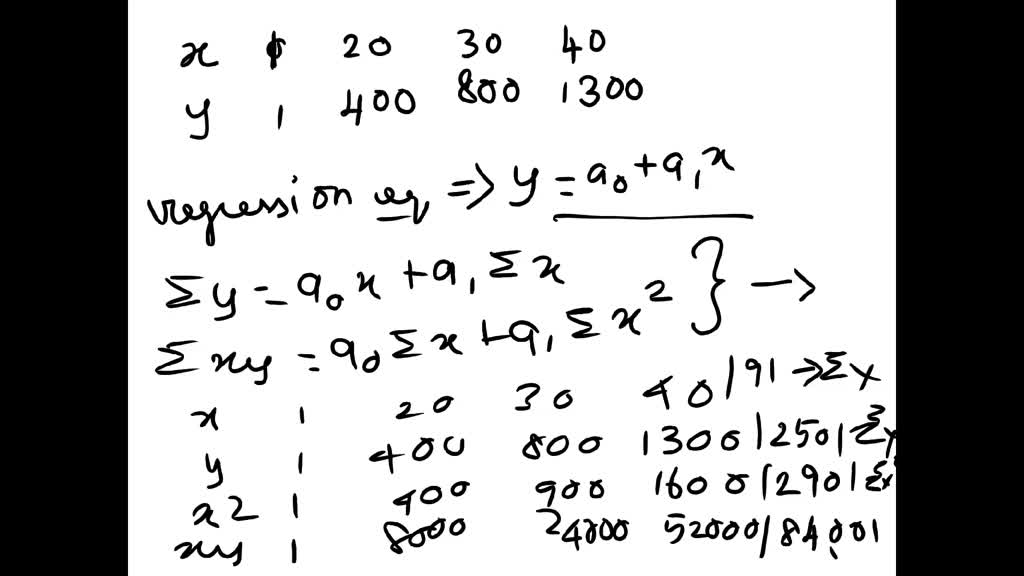 x 1 20 30 40
y 1 400 800 1300
regression eq => y = a₀ + a₁x
Σy = a₀x + a₁Σx } →
Σxy = a₀Σx + a₁Σx²
x 1 20 30 40 / 91 → Σx
y 1 400 800 1300 / 2501 Σy
x2 1 400 900 1600 / 2901 Σx²
xy 1 8000 24000 52000 / 84001